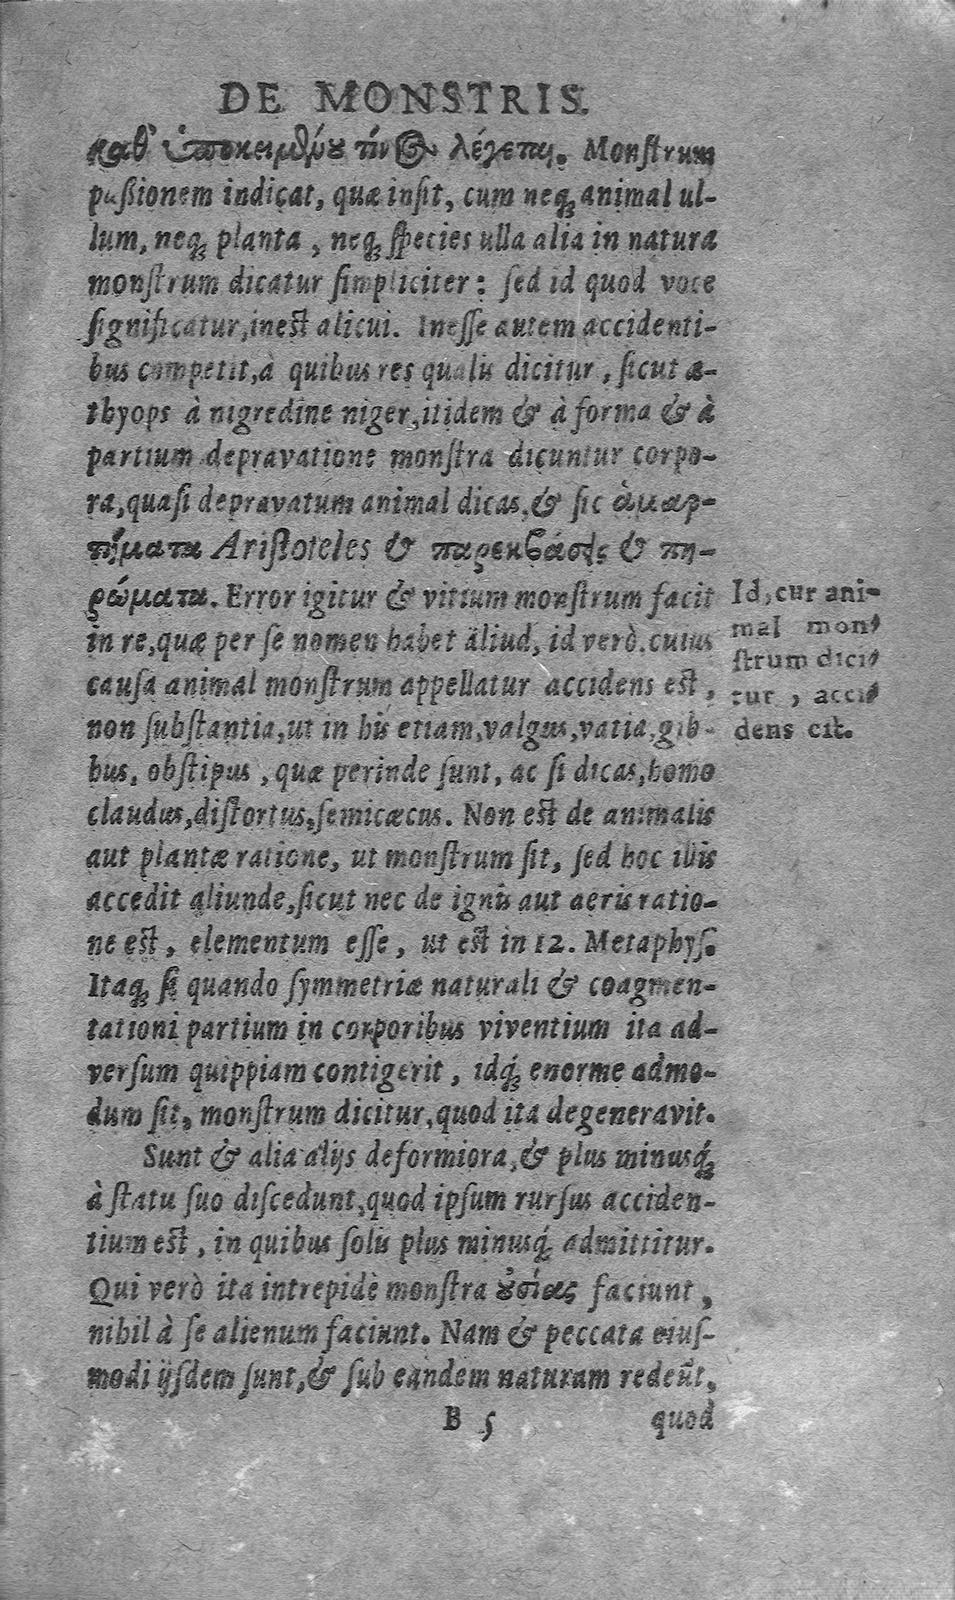 DE MONSTRIS.
καθ' ὑποκειμένου τινὸς λέγεται. Monſtrum
paſsionem indicat, quæ inſit, cum neq; animal ul-
lum, neq; planta, neq; ſpecies ulla alia in natura
monſtrum dicatur ſimpliciter: ſed id quod voce
ſignificatur, ineſt alicui. Ineſſe autem accidenti-
bus competit, à quibus res qualis dicitur, ſicut æ-
thyops à nigredine niger, itidem & à forma & à
partium depravatione monſtra dicuntur corpo-
ra, quaſi depravatum animal dicas, & ſic ἁμαρ-
τήματα Ariſtoteles & παρεκβάσεις & πη-
ρώματα. Error igitur & vitium monſtrum facit
in re, quæ per ſe nomen habet aliud, id verò, cuius
cauſa animal monſtrum appellatur accidens eſt,
non ſubſtantia, ut in his etiam, valgus, vatia, gib-
bus, obſtipus, quæ perinde ſunt, ac ſi dicas, homo
claudus, diſtortus, ſemicæcus. Non eſt de animalis
aut plantæ ratione, ut monſtrum ſit, ſed hoc illis
accedit aliunde, ſicut nec de ignis aut aeris ratio-
ne eſt, elementum eſſe, ut eſt in 12. Metaphyſ.
Itaq; ſi quando ſymmetriæ naturali & coagmen-
tationi partium in corporibus viventium ita ad-
verſum quippiam contigerit, idq; enorme admo-
dum ſit, monſtrum dicitur, quod ita degeneravit.
Sunt & alia alijs deformiora, & plus minusq;
à ſtatu ſuo diſcedunt, quod ipſum rurſus acciden-
tium eſt, in quibus ſolis plus minusq; admittitur.
Qui verò ita intrepidè monſtra ȣ̓σίας faciunt,
nihil à ſe alienum faciunt. Nam & peccata eiuſ-
modi ijſdem ſunt, & ſub eandem naturam redeũt,
B 5 quod
Id, cur ani-
mal mon-
ſtrum dici-
tur, acci-
dens eſt.